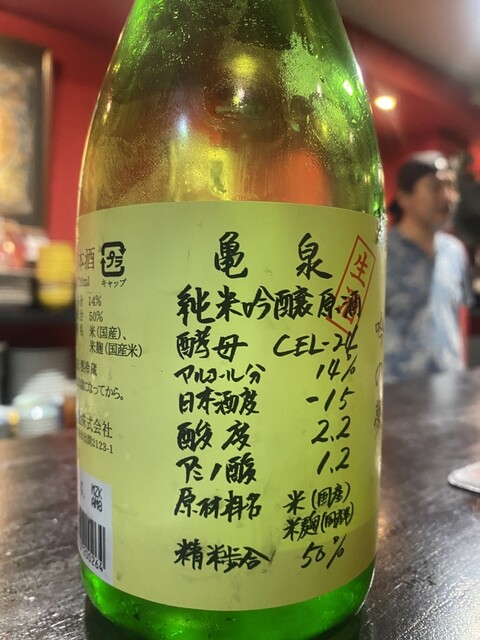 亀 泉
純米吟醸原酒
酵母 CEL-24
アルコール分 14%
日本酒度 -15
酸度 2.2
アミノ酸 1.2
原材料名 米(国産)
米麹(国産米)
精米歩合 50%
生
本酒
プラ
キャップ
14%
50%
米(国産)、
米麹(国産米)
冷蔵
になってから。
株式会社
2123-1
MZK
AM8